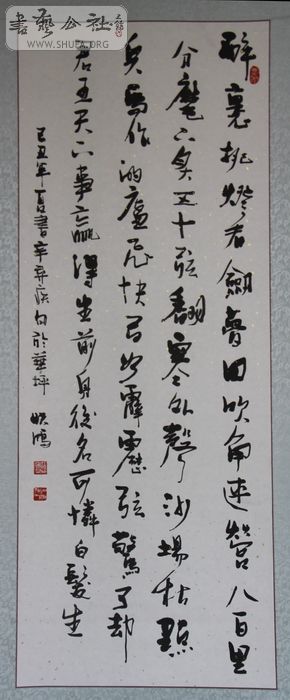 書藝公社
WWW.SHUFA.ORG
醉裏挑燈看劍夢回吹角連營八百里
分麾下炙五十弦翻塞外聲沙場秋點
兵馬作的盧飛快弓如霹靂弦驚了却
君王天下事贏得生前身後名可憐白髮生
己丑年夏書辛棄疾句於華坪